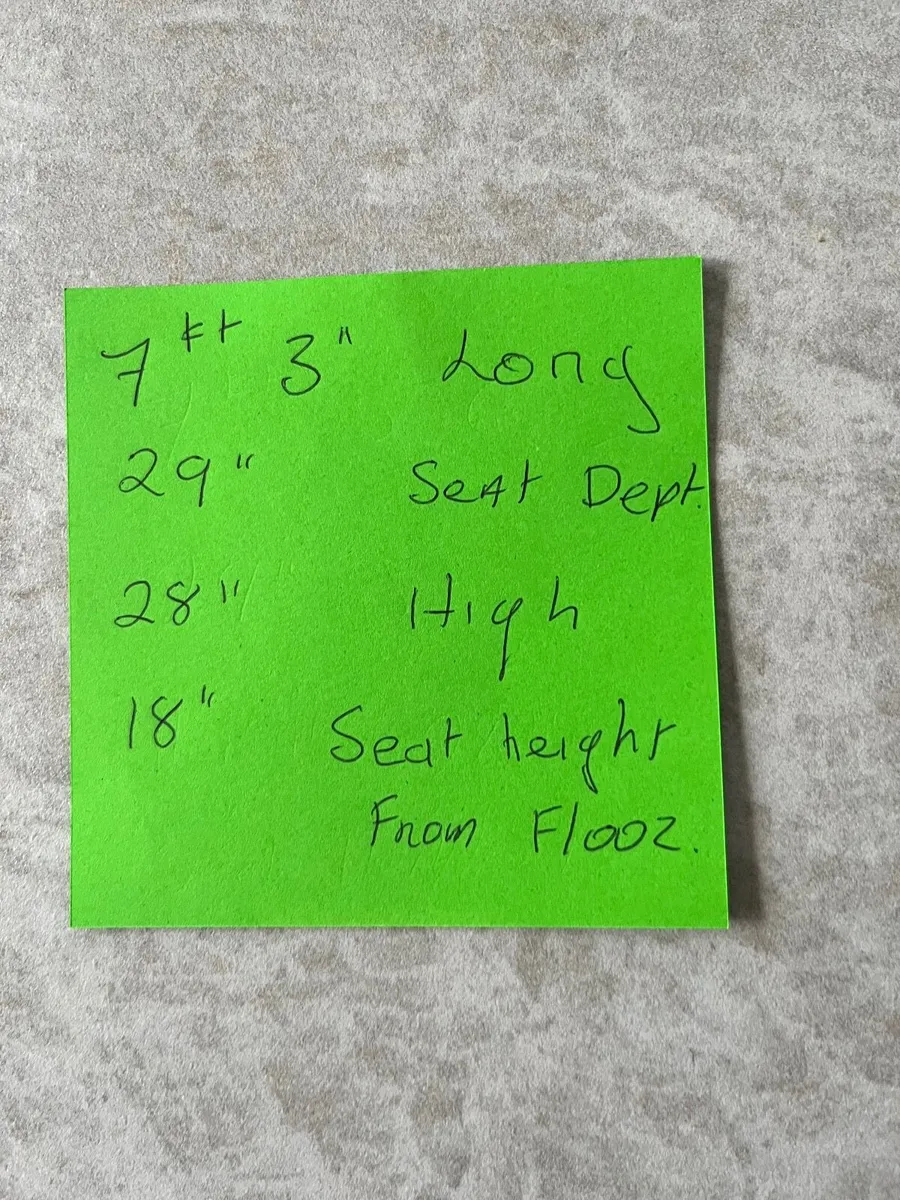 7ft 3" Long
29" Seat Dept.
28" High
18" Seat height
From Floor.